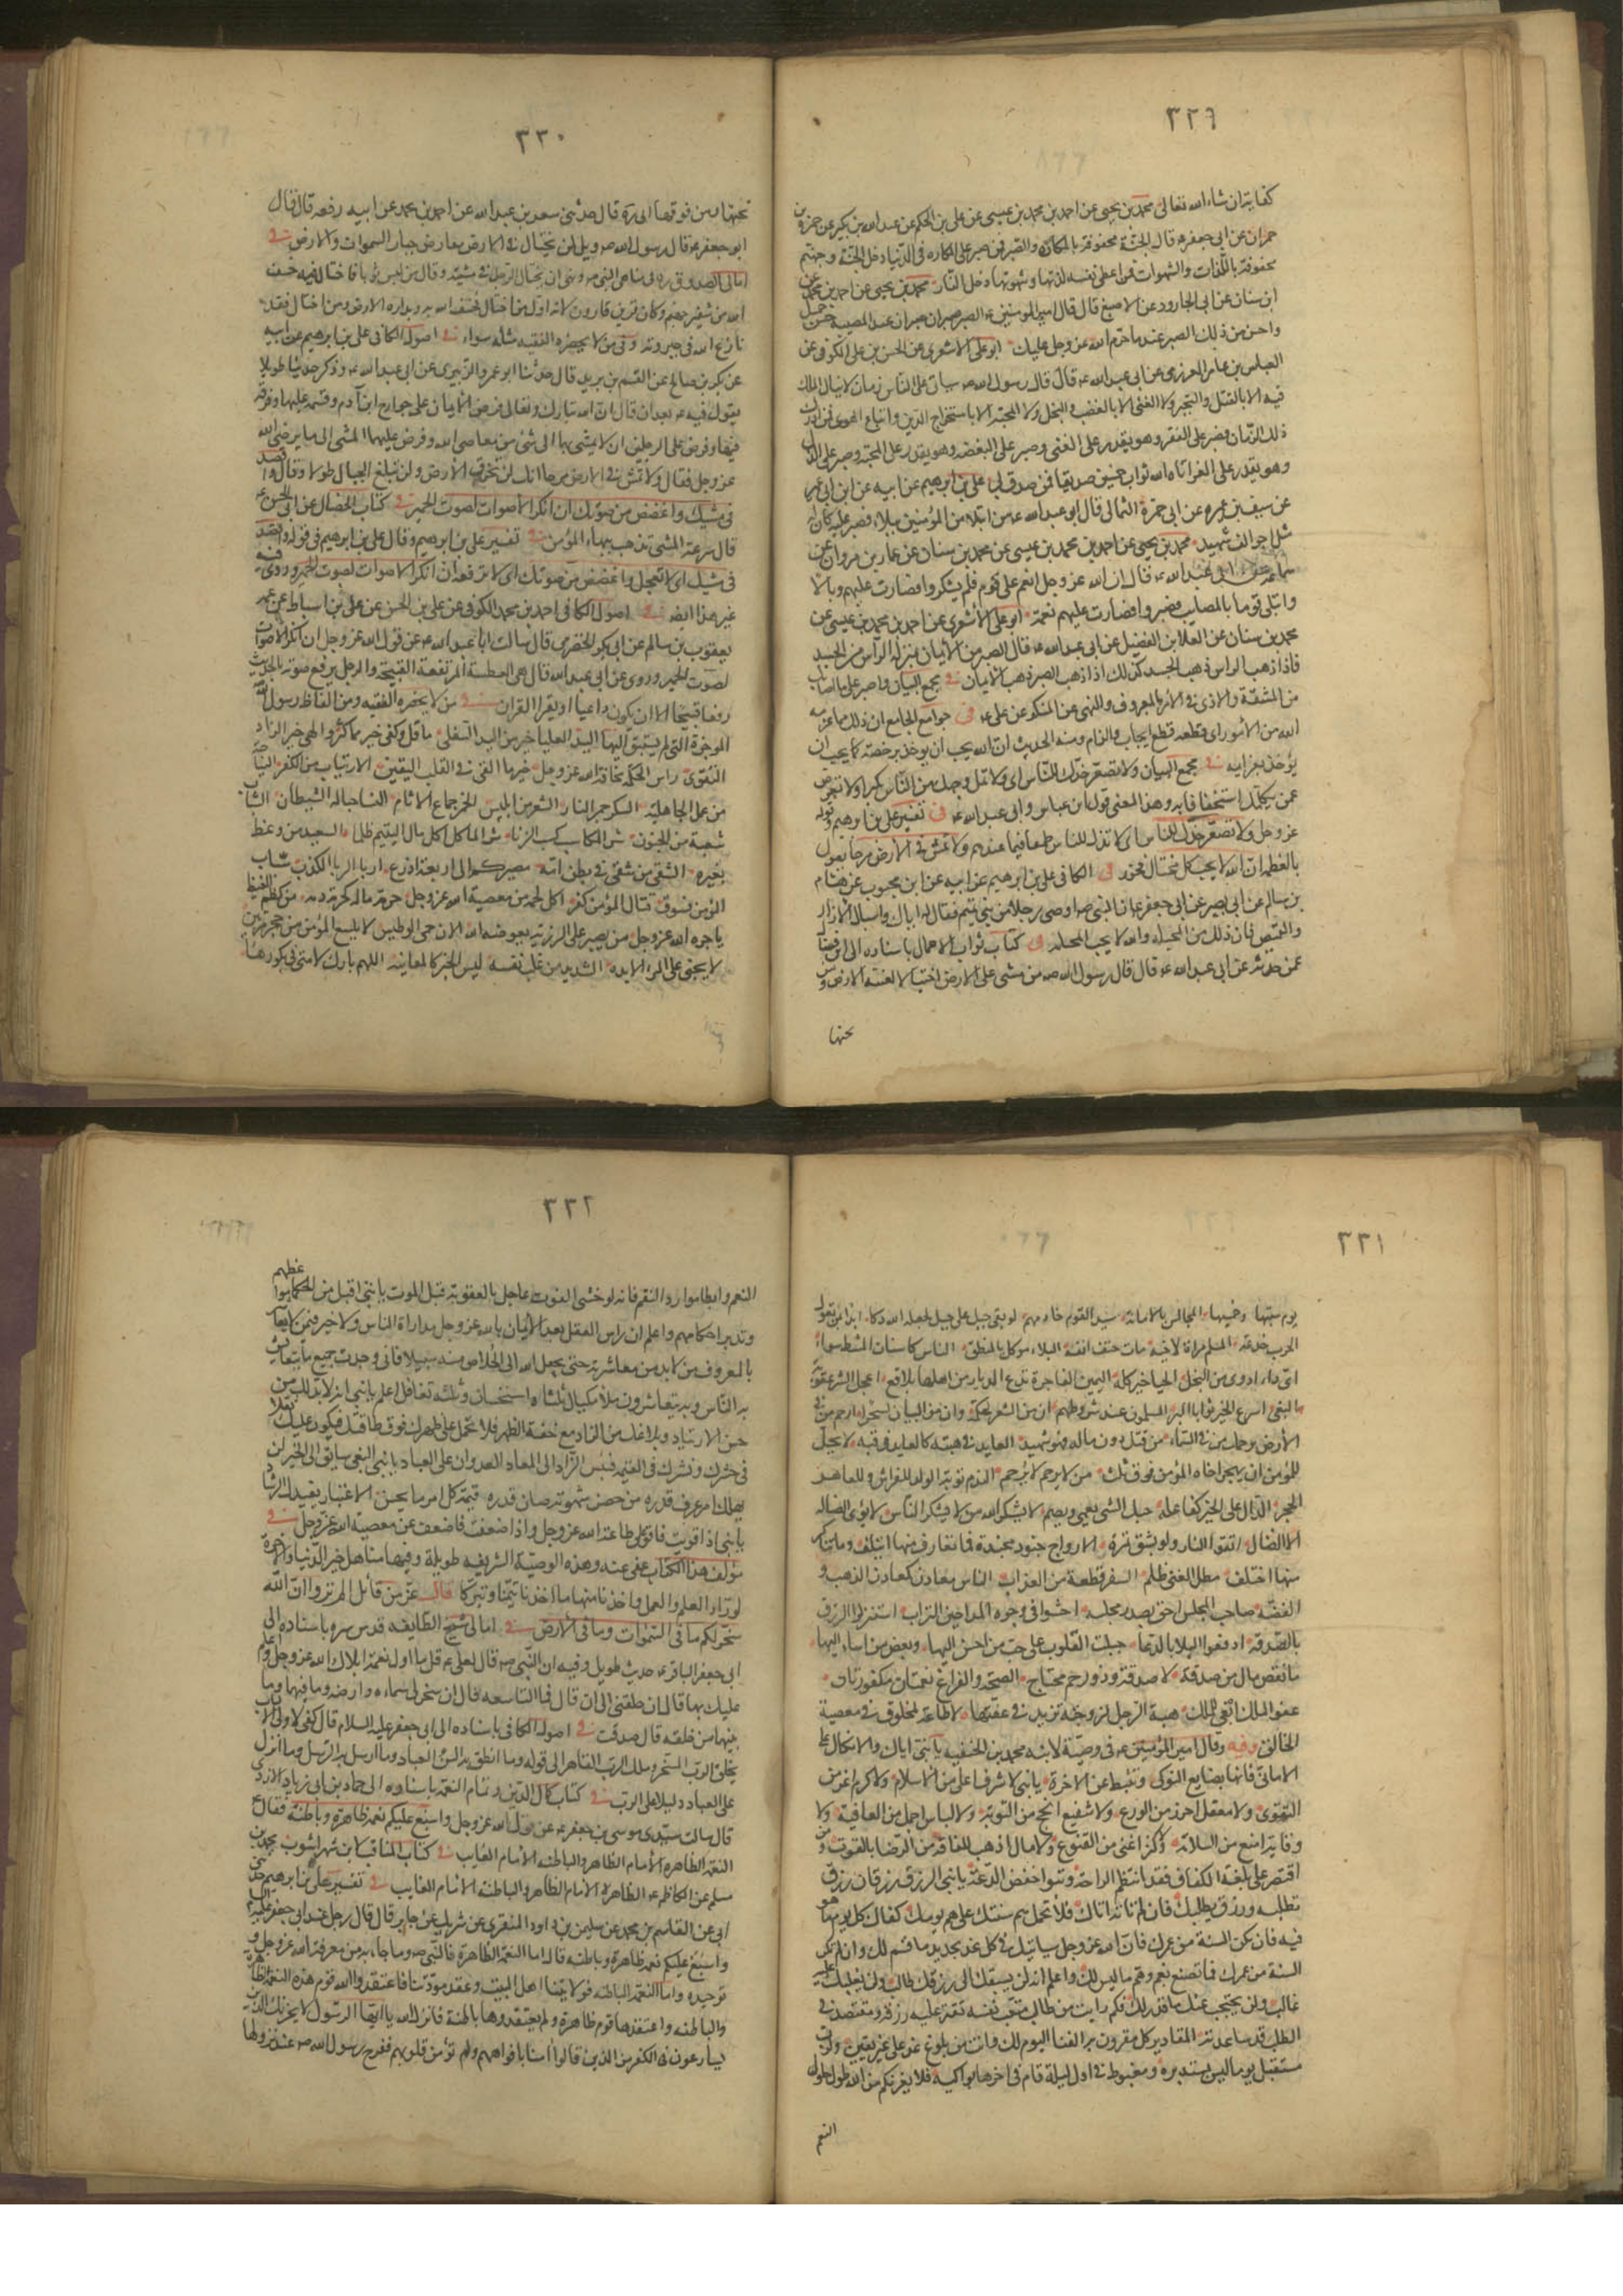 ٣٢٩
كفاية ان شاء الله تعالى محمد بن يحيى عن احمد بن محمد بن عيسى عن على بن الحكم عن عبد الله بن بكير عن حمزة بن
حمران عن ابى جعفر ع قال الجنة محفوفة بالمكاره والصبر فمن صبر على المكاره فى الدنيا دخل الجنة وجهنم
محفوفة باللذات والشهوات فمن اعطى نفسه لذتها وشهوتها دخل النار محمد بن يحيى عن احمد بن محمد عن
ابن سنان عن ابى الجارود عن الاصبغ قال قال امير المؤمنين ع الصبر صبران صبر عند المصيبة حسن جميل
واحسن من ذلك الصبر عند ما حرم الله عز وجل عليك ابو على الاشعرى عن الحسن بن على الكوفى عن
العباس بن عامر العرزمى عن ابى عبد الله ع قال قال رسول الله ص سياتى على الناس زمان لا ينال الملك
فيه الا بالقتل والتجبر ولا الغنى الا بالغصب والبخل ولا المحبة الا باستخراج الدين واتباع الهوى فمن ادرك
ذلك الزمان فصبر على الفقر وهو يقدر على الغنى وصبر على البغضة وهو يقدر على المحبة وصبر على الذل
وهو يقدر على العز اتاه الله ثواب خمسين صديقا ممن صدق بى على بن ابرهيم عن ابيه عن ابن ابى عمير
عن سيف بن عميره عن ابى حمزة الثمالى قال ابو عبد الله ع من ابتلا من المؤمنين ببلاء فصبر عليه كان له
مثل اجر الف شهيد محمد بن يحيى عن احمد بن محمد بن عيسى عن محمد بن سنان عن عمار بن مروان عن
سماعة عن ابى عبد الله ع قال ان الله عز وجل انعم على قوم فلم يشكروا فصارت عليهم وبالا
وابتلى قوما بالمصايب فصبروا فصارت عليهم نعمة ابو على الاشعرى عن احمد بن محمد بن عيسى عن
محمد بن سنان عن العلا بن الفضيل عن ابى عبد الله ع قال الصبر من الايمان بمنزلة الراس من الجسد
فاذا ذهب الراس ذهب الجسد كذلك اذا ذهب الصبر ذهب الايمان فى مجمع البيان واصبر على ما اصابك
من المشقة والاذى فى الامر بالمعروف والنهى عن المنكر عن على ع فى جوامع الجامع ان ذلك مما عزمه
الله من الامور اى قطعه قطع ايجاب والزام ومنه الحديث ان الله يحب ان يؤخذ برخصه كما يحب ان
يؤخذ بعزايمه فى مجمع البيان ولا تصعر خدك للناس اى ولا تمل وجهك من الناس تكبرا ولا تعرض
عمن يكلمك استخفافا به وهذا المعنى قول ابن عباس وابى عبد الله ع فى تفسير على بن ابرهيم وقوله
عز وجل ولا تصعر خدك للناس اى لا تذل للناس طمعا فيما عندهم ولا تمش فى الارض مرحا يقول
بالعظمة ان الله لا يحب كل مختال فخور فى الكافى على بن ابرهيم عن ابيه عن ابن محبوب عن هشام
بن سالم عن ابى بصير عن ابى جعفر ع ان النبى ص اوصى رجلا من بنى تميم فقال له اياك واسبال الازار
والقميص فان ذلك من المخيلة والله لا يحب المخيلة فى كتاب ثواب الاعمال باسناده الى ابن فضال
عمن حدثه عن ابى عبد الله ع قال قال رسول الله ص من مشى على الارض اختيالا لعنته الارض ومن
تحتها
٣٣٠
تحتها ومن فوقها ابى ره قال حدثنى سعد بن عبد الله عن احمد بن محمد عن ابيه رفعه قال قال
ابو جعفر ع قال رسول الله ص ويل لمن يختال فى الارض يعارض جبار السموات والارض فى
امالى الصدوق ره فى مناهى النبى ص ونهى ان يختال الرجل فى مشيه وقال من لبس ثوبا فاختال فيه خسف
الله من شفير جهنم وكان قرين قارون لانه اول من اختال فخسف الله به وبداره الارض ومن اختال فقد
نازع الله فى جبروته وفى من لا يحضره الفقيه مثله سواء فى اصول الكافى على بن ابرهيم عن ابيه
عن بكر بن صالح عن القسم بن بريد قال حدثنا ابو عمرو الزبيرى عن ابى عبد الله ع وذكر حديثا طويلا
يقول فيه ع بعد ان قال ان الله تبارك وتعالى فرض الايمان على جوارح ابن آدم وقسمه عليها وفرقه
فيها وفرض على الرجلين ان لا يمشى بهما الى شئ من معاصى الله وفرض عليهما المشى الى ما يرضى الله
عز وجل فقال ولا تمش فى الارض مرحا انك لن تخرق الارض ولن تبلغ الجبال طولا وقال واقصد
فى مشيك واغضض من صوتك ان انكر الاصوات لصوت الحمير فى كتاب الخصال عن ابى الحسن ع
قال سرعة المشى تذهب ببهاء المؤمن فى تفسير على بن ابرهيم وقال على بن ابرهيم فى قوله واقصد
فى مشيك اى لا تعجل واغضض من صوتك اى لا ترفعه ان انكر الاصوات لصوت الحمير وروى فيه
غير هذا ايضا فى اصول الكافى احمد بن محمد الكوفى عن على بن الحسن عن على بن اسباط عن عمه
يعقوب بن سالم عن ابى بكر الحضرمى قال سالت ابا عبد الله ع عن قول الله عز وجل ان انكر الاصوات
لصوت الحمير وروى عن ابى عبد الله قال هى العطسة المرتفعة القبيحة والرجل يرفع صوته بالحديث
رفعا قبيحا الا ان يكون داعيا او يقرا القران فى من لا يحضره الفقيه ومن الفاظ رسول الله ص
الموجزة التى لم يسبق اليها اليد العليا خير من اليد السفلى ما قل وكفى خير مما كثر والهى خير الزاد
التقوى راس الحكمة مخافة الله عز وجل خير ما القى فى القلب اليقين الارتياب من الكفر النياحة
من عمل الجاهلية السكر جمر النار الشعر من ابليس الخمر جماع الاثام النسا حبالة الشيطان الشباب
شعبة من الجنون شر المكاسب كسب الزنا شر الماكل اكل مال اليتيم ظلما السعيد من وعظ
بغيره الشقى من شقى فى بطن امه مصيركم الى اربعة اذرع اربا الربا الكذب سباب
المؤمن فسوق قتال المؤمن كفر اكل لحمه من معصية الله عز وجل حرمة ماله كحرمة دمه من كظم الغيظ
ياجره الله عز وجل من يصبر على الرزية يعوضه الله الان حمى الوطيس لا يلسع المؤمن من جحر مرتين
لا يجنى على المرء الا يده الشديد من غلب نفسه ليس الخبر كالمعاينة اللهم بارك لامتى فى بكورها
٣٣١
يوم سبتها وخميسها المجالس بالامانة سيد القوم خادمهم لو بغى جبل على جبل لجعله الله دكا ابدا بمن تعول
الحرب خدعة المسلم مراة لاخيه مات حتف انفه البلاء موكل بالمنطق الناس كاسنان المشط سواء
اى داء ادوى من البخل الحيا خير كله اليمين الفاجرة تدع الديار من اهلها بلاقع اعجل الشر عقوبة
البغى اسرع الخير ثوابا البر المسلمون عند شروطهم ان من الشعر لحكمة وان من البيان لسحرا ارحم من فى
الارض يرحمك من فى السماء من قتل دون ماله فهو شهيد العايد فى هبته كالعايد فى قيئه لا يحل
للمؤمن ان يهجر اخاه المؤمن فوق ثلث من لا يرحم لا يرحم الندم توبة الولد للفراش وللعاهر
الحجر الدال على الخير كفاعله حبك الشى يعمى ويصم لا يشكر الله من لا يشكر الناس لا يؤوى الضالة
الا الضال اتقوا النار ولو بشق تمرة الارواح جنود مجندة فما تعارف منها ائتلف وما تناكر
منها اختلف مطل الغنى ظلم السفر قطعة من العذاب الناس معادن كمعادن الذهب و
الفضة صاحب المجلس احق بصدر مجلسه احثوا فى وجوه المداحين التراب استنزلوا الرزق
بالصدقة ادفعوا البلا بالدعا جبلت القلوب على حب من احسن اليها وبغض من اساء اليها
ما نقص مال من صدقة لا صدقة وذو رحم محتاج الصحة والفراغ نعمتان مكفورتان
عفو الملك ابقى للملك هبة الرجل لزوجته تزيد فى عفتها لا طاعة لمخلوق فى معصية
الخالق وفيه وقال امير المؤمنين ع فى وصيته لابنه محمد بن الحنفيه يا بنى اياك والاتكال على
الامانى فانها بضايع النوكى وتثبط عن الاخرة يا بنى لا شرف اعلى من الاسلام ولا كرم اعز من
التقوى ولا معقل احرز من الورع ولا شفيع انجح من التوبة ولا لباس اجمل من العافية ولا
وقاية امنع من السلامة ولا كنز اغنى من القنوع ولا مال اذهب للفاقة من الرضا بالقوت ومن
اقتصر على بلغة الكفاف فقد انتظم الراحة وتبوا خفض الدعة يا بنى الرزق رزقان رزق
تطلبه ورزق يطلبك فان لم تاته اتاك فلا تحمل هم سنتك على هم يومك كفاك كل يوم ما هو
فيه فان تكن السنة من عمرك فان الله عز وجل سياتيك فى كل غد بجديد ما قسم لك وان لم تكن
السنة من عمرك فما تصنع بغم وهم ما ليس لك واعلم انه لن يسبقك الى رزقك طالب ولن يغلبك عليه
غالب ولن يحتجب عنك ما قدر لك فكم رايت من طالب متعب نفسه مقتر عليه رزقه ومقتصد فى
الطلب قد ساعدته المقادير كل مقرون به الفنا اليوم لك وانت من بلوغ غد على غير يقين ولرب
مستقبل يوما ليس بمستدبره ومغبوط فى اول ليلة قام فى اخرها بواكيه فلا يغرنكم من الله طول حلول
النعم
٣٣٢
النعم وابطا موارد النقم فانه لو خشى الفوت عاجل بالعقوبة قبل الموت يا بنى اقبل من الحكما مواعظهم
وتدبر احكامهم واعلم ان راس العقل بعد الايمان بالله عز وجل مداراة الناس ولا خير فيمن لا يعاشر
بالمعروف من لا بد من معاشرته حتى يجعل الله الى الخلاص منه سبيلا فانى وجدت جميع ما يتعايش
به الناس وبه يتعاشرون ملا مكيال ثلثاه استحسان وثلثه تغافل اعلم يا بنى انه لا بد لك من
حسن الارتياد وبلاغك من الزاد مع خفة الظهر فلا تحمل على ظهرك فوق طاقتك فيكون عليك ثقلا
فى حشرك ونشرك فى القيمه فبئس الزاد الى المعاد العدوان على العباد يا بنى البغى سايق الى الحين لن
يهلك امرء عرف قدره من حصن شهوته صان قدره قيمة كل امرء ما يحسن الاعتبار يفيدك الرشاد
يا بنى اذا قويت فاقو على طاعة الله عز وجل واذا ضعفت فاضعف عن معصية الله عز وجل فى
مؤلف هذا الكتاب عفى عنه وهذه الوصية الشريفة طويلة وفيها مناهل خير الدنيا والاخرة
لوراد العلم والعمل واخذنا منها ما اخذنا تيمنا وتبركا قال عز من قائل الم تروا ان الله
سخر لكم ما فى السموات وما فى الارض فى امالى شيخ الطايفه قدس سره باسناده الى
ابى جعفر الباقر ع حديث طويل وفيه ان النبى ص قال لعلى ع قل ما اول نعمة ابلاك الله عز وجل وانعم
عليك بها قال ان خلقنى الى ان قال فما التاسعه قال ان سخر لى سماءه وارضه وما فيهما وما
بينهما من خلقه قال صدقت فى اصول الكافى باسناده الى ابى جعفر عليه السلام قال كفى لاولى الالباب
بخلق الرب المسخر وملك الرب القاهر الى قوله وما انطق به السن العباد وما ارسل به الرسل وما انزل
على العباد دليلا على الرب فى كتاب كمال الدين وتمام النعمة باسناده الى حماد بن ابى زياد الازدى
قال سالت سيدى موسى بن جعفر ع عن قول الله عز وجل واسبغ عليكم نعمه ظاهرة وباطنة فقال ع
النعمة الظاهرة الامام الظاهر والباطنه الامام الغايب فى كتاب المناقب لابن شهر اشوب محمد بن
مسلم عن الكاظم ع الظاهرة الامام الظاهر والباطنة الامام الغايب فى تفسير على بن ابرهيم حدثنى
ابى عن القاسم بن محمد عن سليمن بن داود المنقرى عن شريك عن جابر قال قال رجل عند ابى جعفر عليه السلام
واسبغ عليكم نعمه ظاهرة وباطنه قال اما النعمة الظاهرة فالنبى ص وما جاء به من معرفة الله عز وجل و
توحيده واما النعمة الباطنه فولايتنا اهل البيت وعقد مودتنا فاعتقد والله قوم هذه النعمة الظاهرة
والباطنه واعتقدها قوم ظاهرة ولم يعتقدوها باطنة فانزل الله يا ايها الرسول لا يحزنك الذين
يسارعون فى الكفر من الذين قالوا امنا بافواههم ولم تؤمن قلوبهم ففرح رسول الله ص عند نزولها